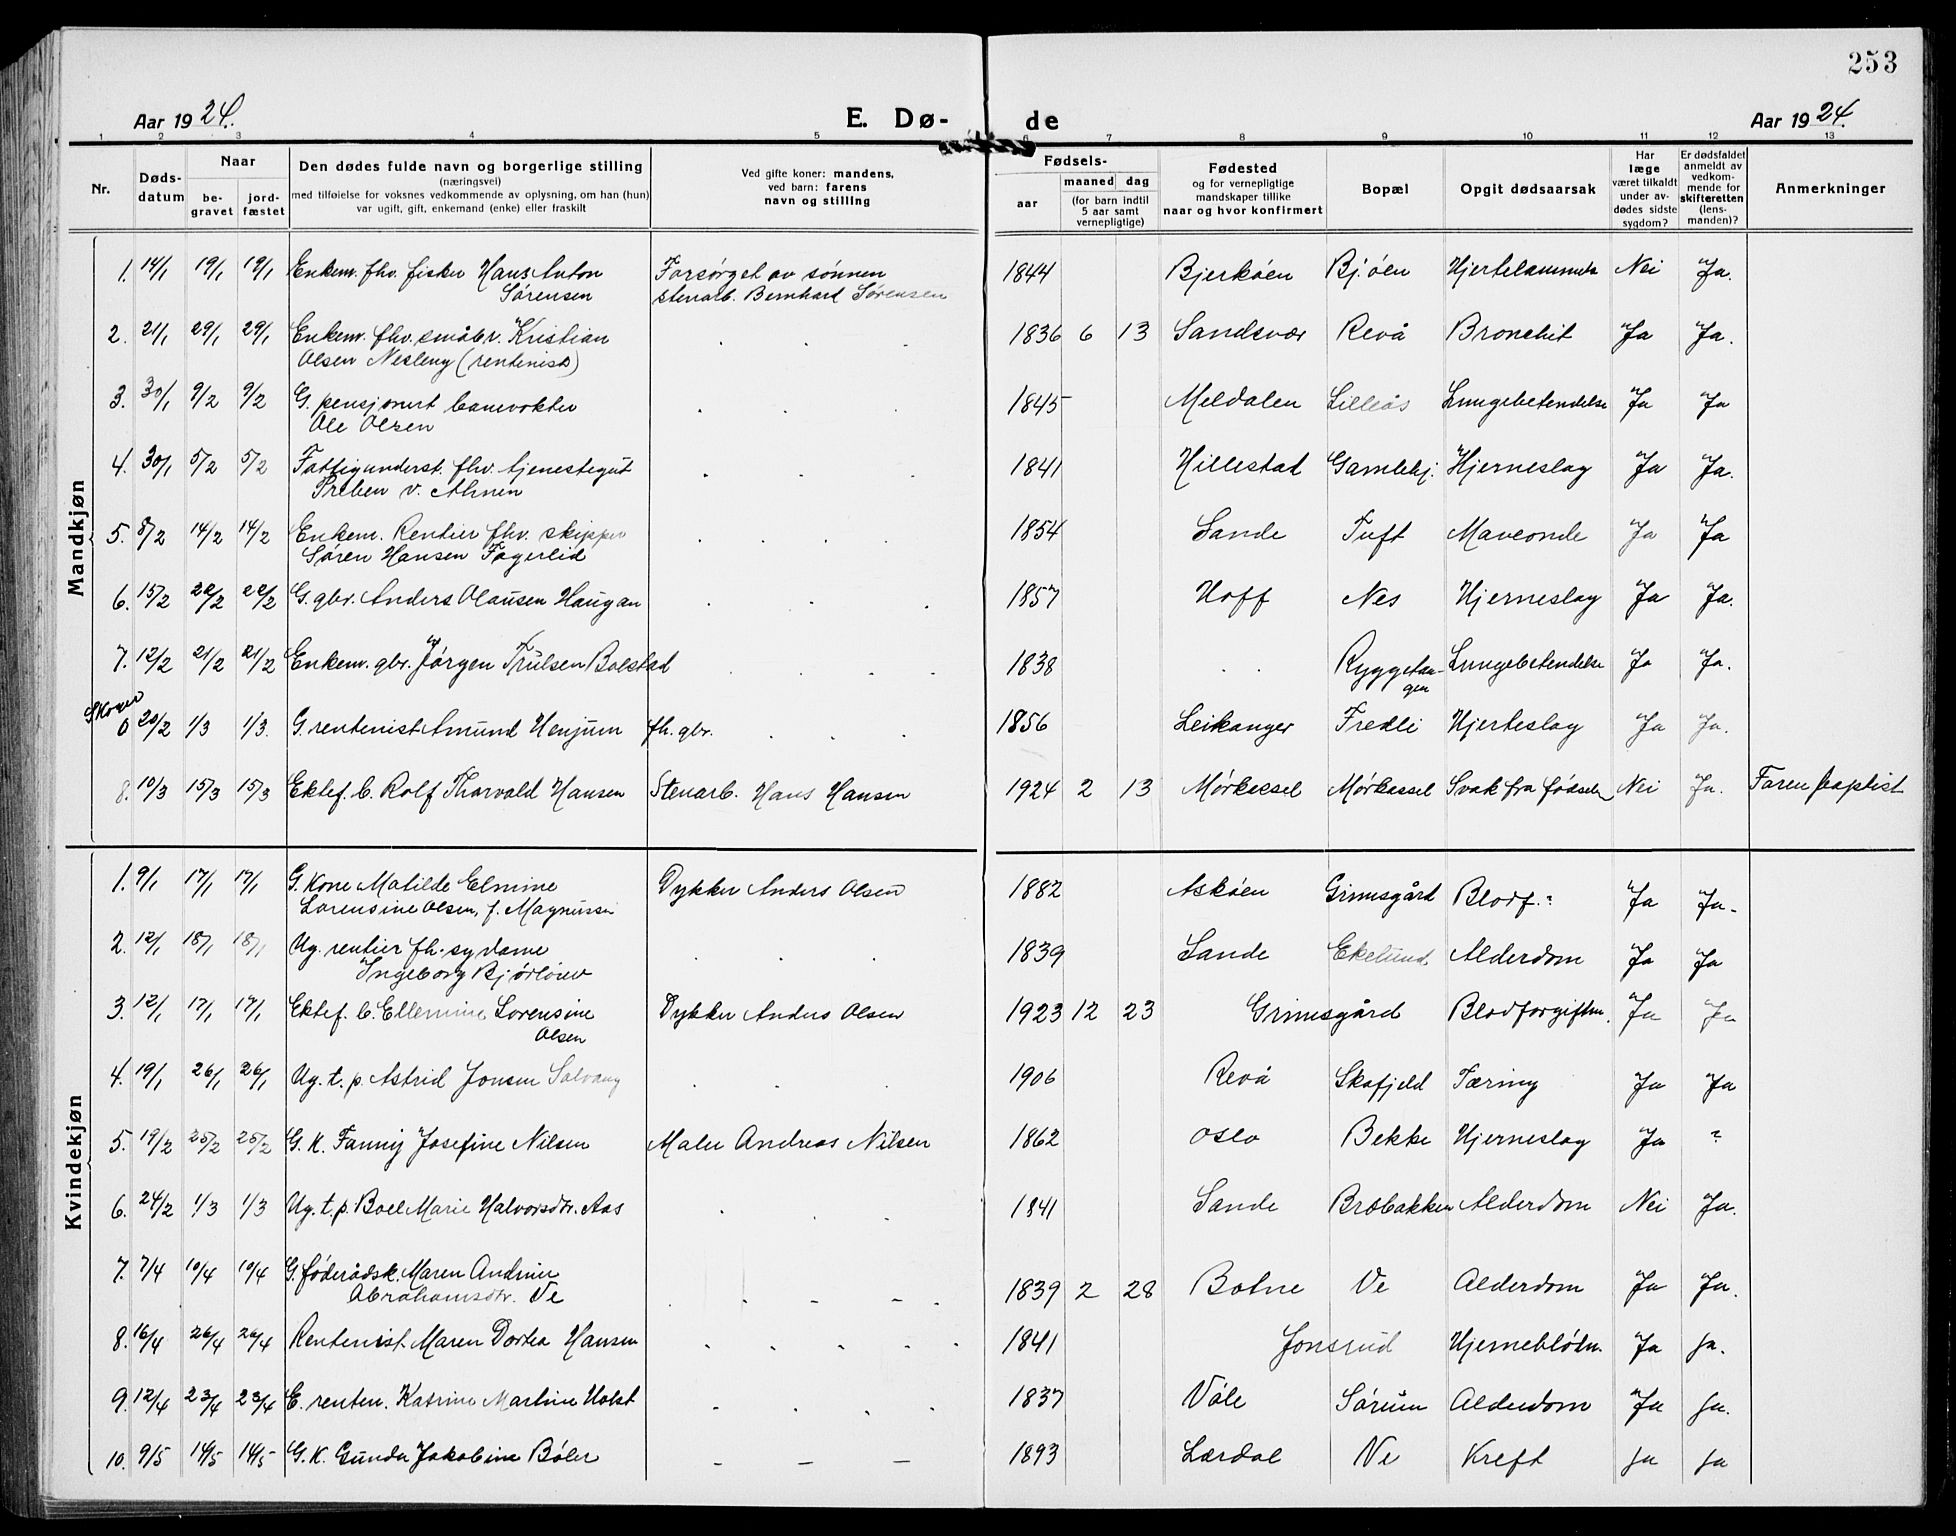 253
Aar 1924. E. Dø- de Aar 1924.
1 2 3 4 5 6 7 8 9 10 11 12 13
Nr. Døds-datum Naar be-gravet jord-fæstet Den dødes fulde navn og borgerlige stilling (næringsvei) med tilføielse for voksnes vedkommende av oplysning, om han (hun) var ugift, gift, enkemand (enke) eller fraskilt Ved gifte koner: mandens, ved barn: farens navn og stilling Fødsels- aar maaned dag (for barn indtil 5 aar samt vernepligtige) Fødested og for vernepligtige mandskaper tillike naar og hvor konfirmert Bopæl Opgit dødsaarsak Har læge været tilkaldt under av-dødes sidste sygdom? Er dødsfaldet anmeldt av vedkom-mende for skifteretten (lens-manden)? Anmerkninger
Mandkjøn
1. 14/1 19/1 19/1 Enkem. fhv. fisker Hans Anton Forsørget av sønnen 1844 Bjerkøen Bj.øen Hjertelammelse Nei Ja.
Sørensen stenarb. Bernhard Sørensen
2. 21/1 29/1 29/1 Enkem. fhv. småbr. Kristian 1836 6 13 Sandsvær Revå Bronchit Ja Ja.
Olsen Nesleng (rentenist)
3. 30/1 9/2 9/2 G. pensjonert banevokter 1845 Meldalen Lilleås Lungebetendelse Ja Ja
Ole Olsen
4. 30/1 5/2 5/2 Fattigunderst. fhv. tjenestegut 1841 Hillestad Gamlehj. Hjerneslag Ja Ja.
Preben v. Ahnen
5. 8/2 14/2 14/2 Enkem. Rentier fhv. skipper 1854 Sande Tuft Maveonde Ja Ja
Søren Hansen Fagerlid
6. 15/2 22/2 22/2 G. gbr. Anders Olausen Haugan 1857 Hoff Nes Hjerneslag Ja Ja.
7. 12/2 21/2 21/2 Enkem. gbr. Jørgen Trulsen Bolstad 1838 Ryggetan- Lungebetendelse Ja Ja.
gen
Skoger
0 20/2 1/3 1/3. G. rentenist Amund Henjum fh. gbr. 1856 Leikanger Fredli Hjerteslag Ja Ja.
8. 10/3 15/3 15/3 Ektef. b. Rolf Thorvald Hansen Stenarb. Hans Hansen 1924 2 13 Mørkæsel Mørkassel Svak fra fødselen Nei Ja. Faren baptist
Kvindekjøn
1. 9/1 17/1 17/1 G. Kone Matilde Elmine Dykker Anders Olsen 1882 Askøen Grimsgård Blodf.? Ja Ja-
Lorensine Olsen, f. Magnussen
2. 12/1 18/1 18/1 Ug. rentier fh. sydame 1839 Sande Ekelund Alderdom Ja Ja
Ingeborg Bjørløw
3. 12/1 17/1 17/1 Ektef. b. Ellemine Lorensine Dykker Anders Olsen 1923 12 23 Grimsgård Blodforgiftn. Ja Ja
Olsen
4. 19/1 26/1 26/1 Ug. t. p. Astrid Jonsen Solvang 1906 Revå Skafjeld Tæring Ja Ja
5. 19/2 25/2 25/2 G. K. Fanny Josefine Nilsen Maler Andreas Nilsen 1862 Oslo Bekke Hjerneslag Ja ?
6. 24/2 1/3 1/3 Ug. t. p. Boel Marie Halvorsdtr. Aas 1841 Sande Bråbakken Alderdom Nei Ja.
7. 7/4 10/4 10/4 G. føderådsk. Maren Andrine
Abrahamsdtr. Ve 1839 2 28 Botne Ve Alderdom Ja Ja.
8. 16/4 26/4 26/4 Rentenist Maren Dortea Hansen 1841 Jonsrud Hjerneblødn. Ja ja.
9. 12/4 23/4 23/4 E. renten. Katrine Martine Holst 1837 Våle Sørum Alderdom Ja ja.
10. 9/5 14/5 14/5 G. K. Gunda Jakobine Bøler 1893 Lærdal Ve Kreft ja ja